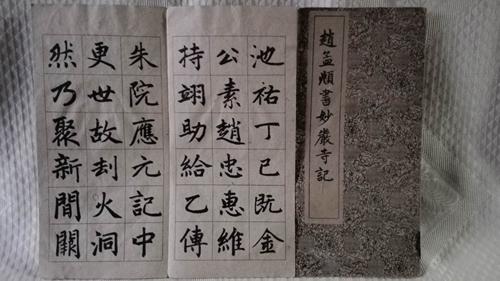 趙孟頫書妙嚴寺記
池祐丁巳既金
公素趙忠惠維
持翊助給乙傳
朱院應元記中
更世故刦火洞
然乃聚新間闢